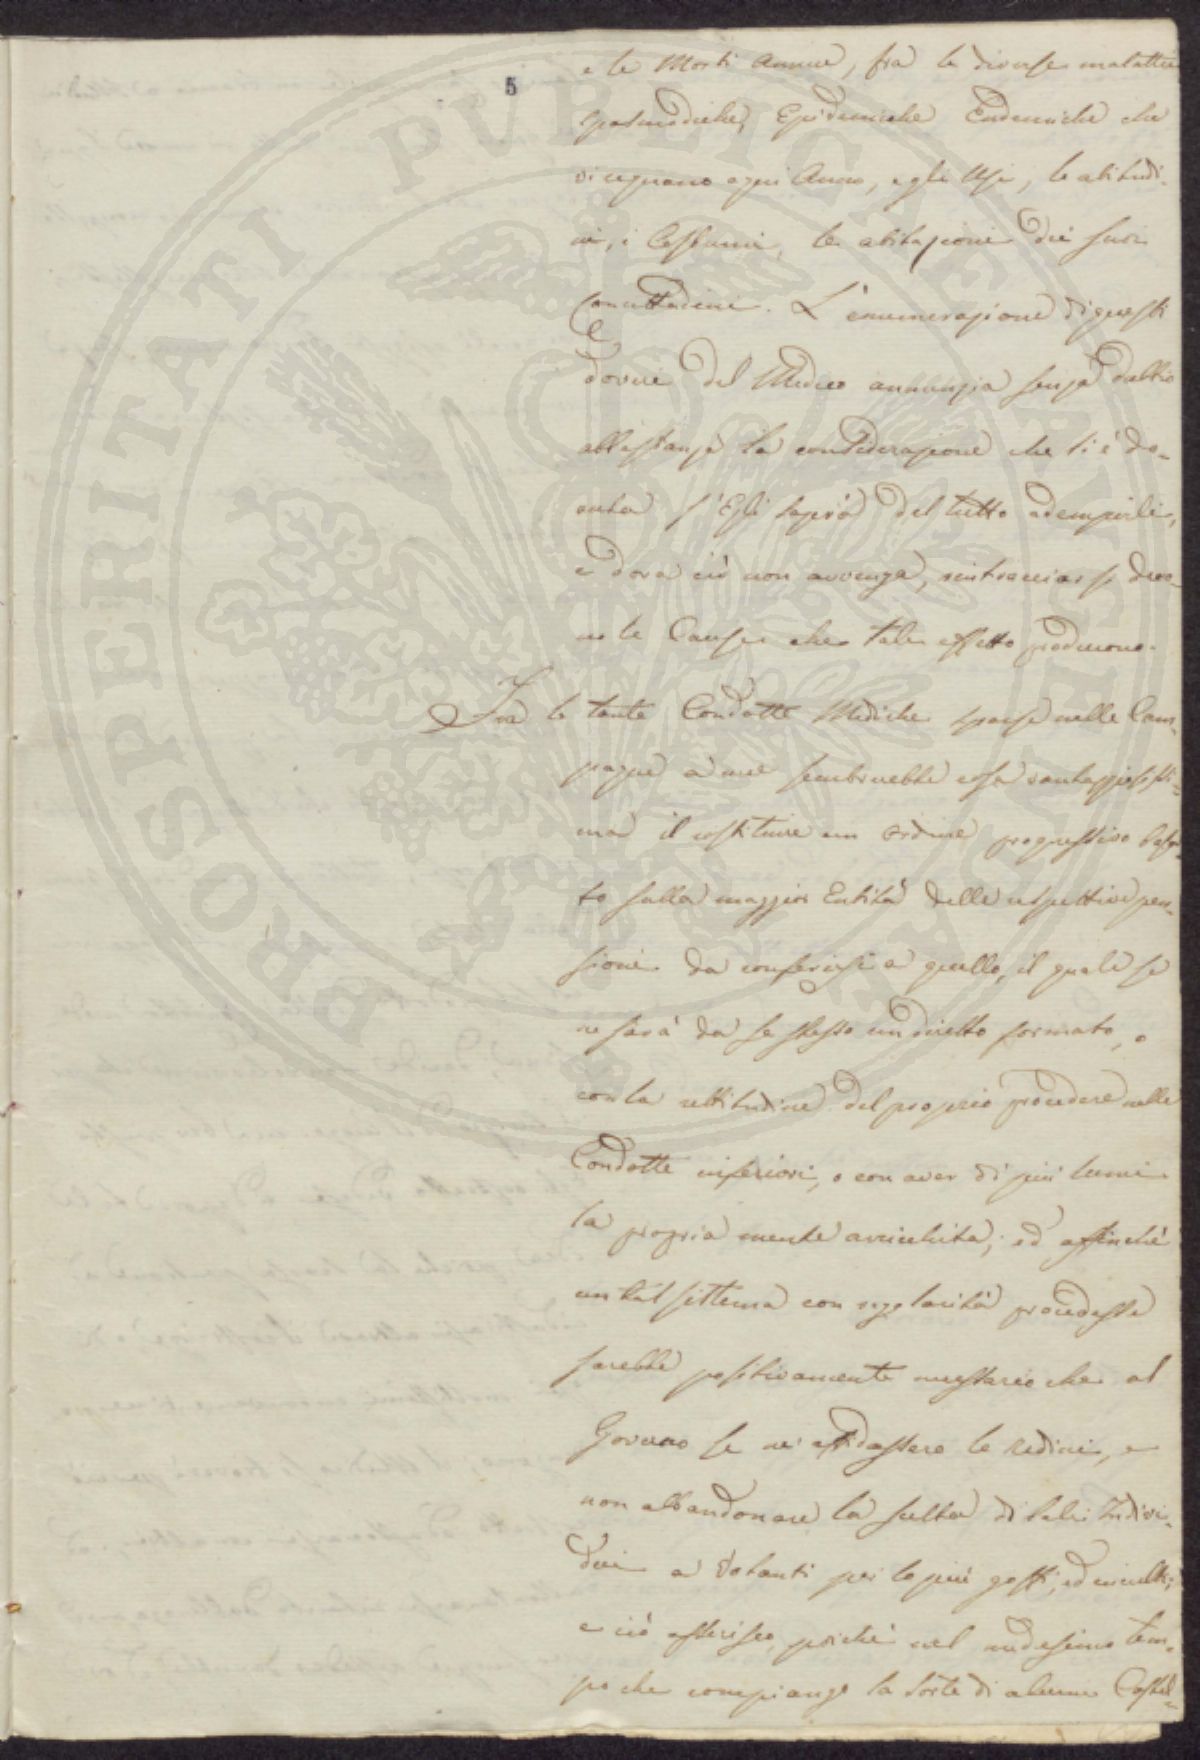 5
e le Morti Annue, fra le diverse malattie
spasmodiche, Epidemiche Endemiche che
vi regnano ogni Anno, e gli Usi, le abitudi-
ni, i Costumi, le abitazioni dei suoi
Concittadini. L'enumerazione di questi
doveri del Medico annunzia senza dubbio
abbastanza la considerazione che li è do-
vuta s'Egli saprà del tutto adempirli,
e dova ciò non avvenga, rintracciar si devo-
no le Cause che tale effetto producono.
Fra le tante Condotte Mediche sparse nelle Cam-
pagne a me sembrerebbe cosa vantaggiosissi-
ma il costituire un ordine progressivo basa-
to sulla maggior Entità delle rispettive pen-
sioni da conferirsi a quello, il quale se
ne sarà da se stesso un diritto formato, o
con la rettitudine del proprio procedere nelle
Condotte inferiori, o con aver di più lumi
la propria mente arricchita; ed affinché
un tal sistema con regolarità procedesse
sarebbe positivamente necessario che al
Governo se ne affidassero le redini, e
non abbandonare la scelta di tali Indivi-
dui a Votanti per lo più goffi, ed inculti;
e ciò asserisco, poiché nel medesimo tem-
po che compiango la sorte di alcuni Castel-
PROSPERITATI PUBLICAE AUGENDAE